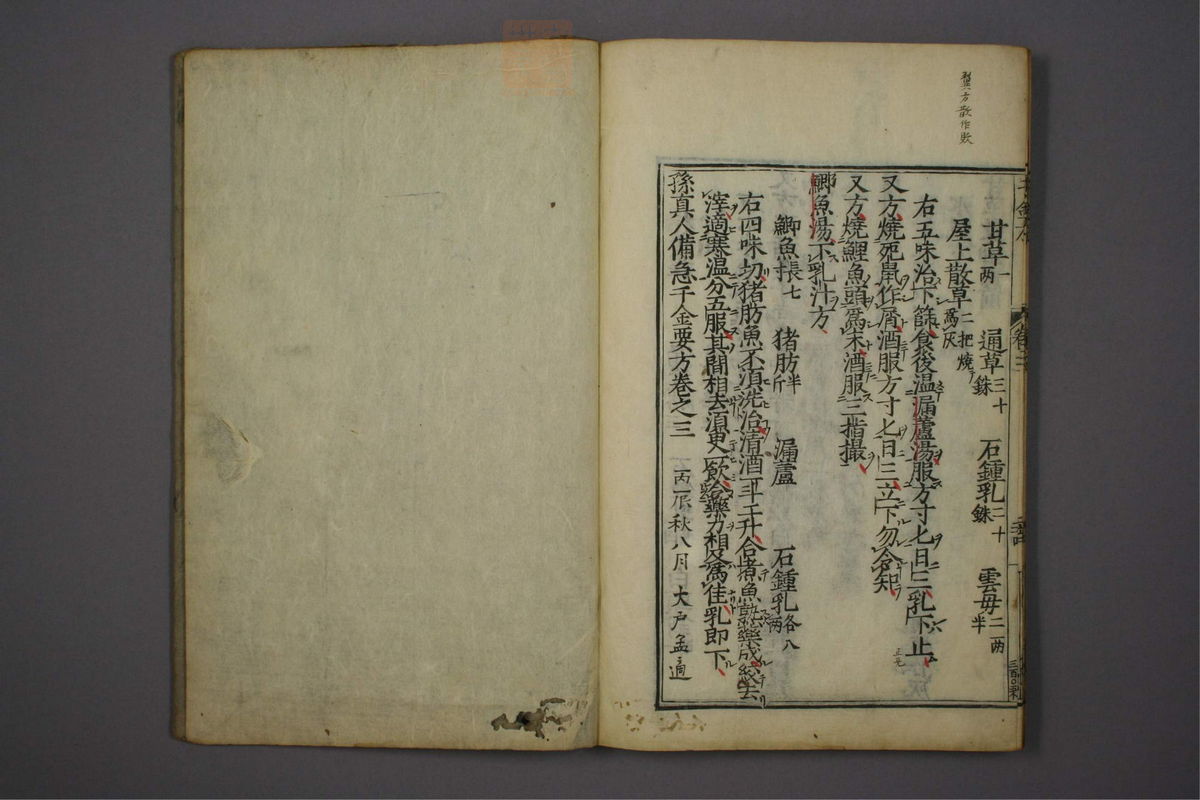 翼方散作敗
甘草一两 通草三十銖 石鍾乳三十銖 雲母二两半
屋上散草二把燒爲灰
右五味治下篩食後温漏蘆湯服方寸匕日三乳下止
又方燒死鼠作屑酒服方寸匕日三立下勿令知
又方燒鯉魚頭爲末酒服三指撮
鯽魚湯下乳汁方
鯽魚長七 猪肪半斤 漏蘆 石鍾乳各八两
右四味切猪肪魚不須洗治清酒一斗二升合煮魚熟藥成絞去
滓適寒温分五服其間相去須臾一飲令藥力相及爲佳乳即下
孫真人備急千金要方卷之三
丙辰秋八月 大戶孟適